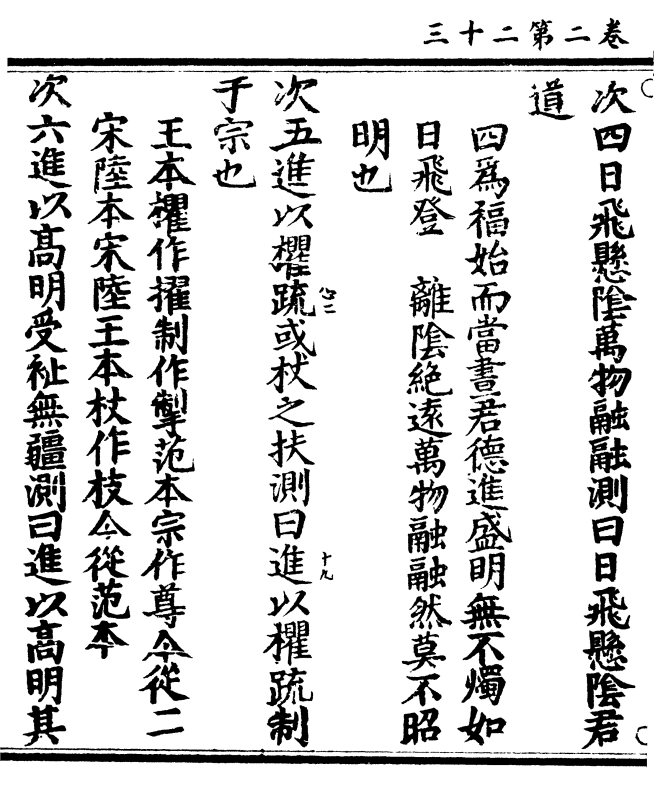 卷二第二十三
次四日飛懸陰萬物融融測曰日飛懸陰君
道
四爲福始而當晝君德進盛明無不燭如
日飛登　離陰絶遠萬物融融然莫不昭
明也
次五進以欋疏或杖之扶測曰進以欋疏制
于宗也
王本欋作擢制作掣范本宗作尊今從二
宋陸本宋陸王本杖作枝今從范本
次六進以高明受祉無疆測曰進以高明其